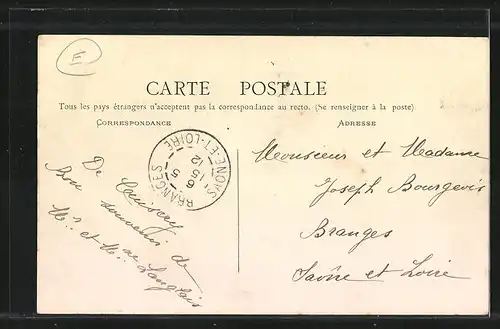 E
CARTE POSTALE
Tous les pays étrangers n'acceptent pas la correspondance au recto. (Se renseigner à la poste)
CORRESPONDANCE
ADRESSE
BRANGES
SAONE-ET-LOIRE
15 12
6 5
De Cuisery
Bon souvenir de
Mr et Mme Langlais
Monsieur et Madame
Joseph Bourgeois
Branges
Saône et Loire